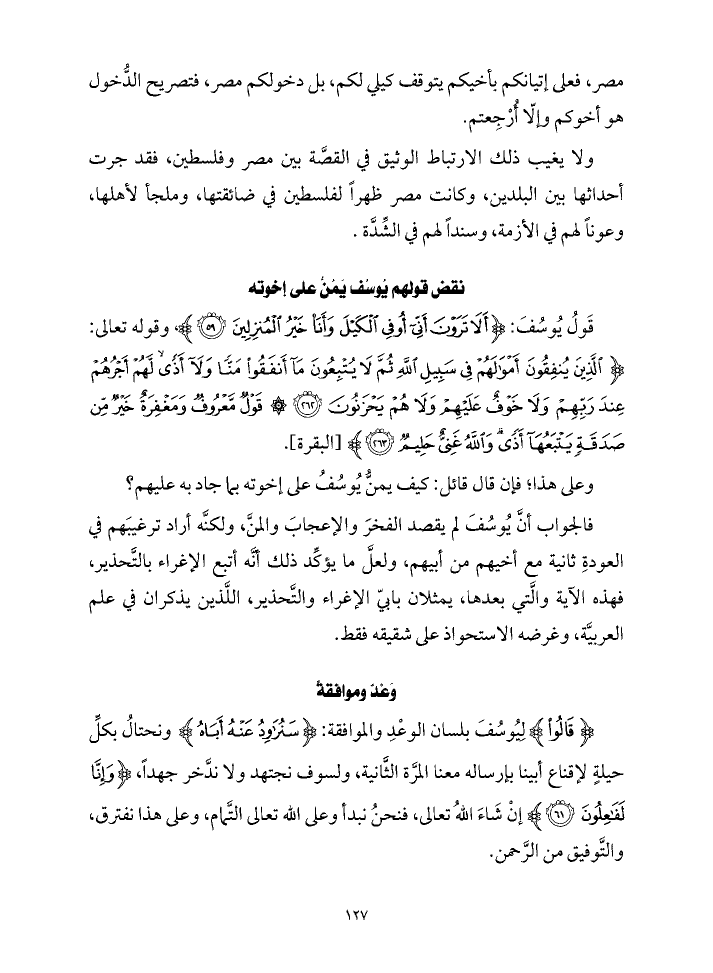 مصر، فعلى إتيانكم بأخيكم يتوقف كيلي لكم، بل دخولكم مصر، فتصريح الدُّخول
هو أخوكم وإلّا أُرْجِعتم.
ولا يغيب ذلك الارتباط الوثيق في القصَّة بين مصر وفلسطين، فقد جرت
أحداثها بين البلدين، وكانت مصر ظهراً لفلسطين في ضائقتها، وملجأ لأهلها،
وعوناً لهم في الأزمة، وسنداً لهم في الشِّدَّة .
نقض قولهم يُوسُف يَمُنُّ على إخوته
قَولُ يُوسُفَ: ﴿ أَلَا تَرَوْنَ أَنِّيٓ أُوفِي ٱلْكَيْلَ وَأَنَا۠ خَيْرُ ٱلْمُنزِلِينَ ۝٥٩ ﴾، وقوله تعالى:
﴿ ٱلَّذِينَ يُنفِقُونَ أَمْوَٰلَهُمْ فِي سَبِيلِ ٱللَّهِ ثُمَّ لَا يُتْبِعُونَ مَآ أَنفَقُوا۟ مَنًّا وَلَآ أَذًى ۙ لَّهُمْ أَجْرُهُمْ
عِندَ رَبِّهِمْ وَلَا خَوْفٌ عَلَيْهِمْ وَلَا هُمْ يَحْزَنُونَ ۝٢٦٢ ۞ قَوْلٌ مَّعْرُوفٌ وَمَغْفِرَةٌ خَيْرٌ مِّن
صَدَقَةٍ يَتْبَعُهَآ أَذًى ۗ وَٱللَّهُ غَنِيٌّ حَلِيمٌ ۝٢٦٣ ﴾ [البقرة].
وعلى هذا؛ فإن قال قائل: كيف يمنُّ يُوسُفُ على إخوته بما جاد به عليهم؟
فالجواب أنَّ يُوسُفَ لم يقصد الفخرَ والإعجابَ والمنَّ، ولكنَّه أراد ترغيبَهم في
العودةِ ثانية مع أخيهم من أبيهم، ولعلَّ ما يؤكِّد ذلك أنَّه أتبع الإغراء بالتَّحذير،
فهذه الآية والَّتي بعدها، يمثلان بابيّ الإغراء والتَّحذير، اللَّذين يذكران في علم
العربيَّة، وغرضه الاستحواذ على شقيقه فقط.
وَعْدٌ وموافقةٌ
﴿ قَالُوا۟ ﴾ لِيُوسُفَ بلسان الوعْدِ والموافقة: ﴿ سَنُرَٰوِدُ عَنْهُ أَبَاهُ ﴾ ونحتالُ بكلِّ
حيلةٍ لإقناع أبينا بإرساله معنا المرَّة الثَّانية، ولسوف نجتهد ولا ندَّخر جهداً، ﴿ وَإِنَّا
لَفَٰعِلُونَ ۝٦١ ﴾ إنْ شَاءَ اللهُ تعالى، فنحنُ نبدأ وعلى الله تعالى التَّمام، وعلى هذا نفترق،
والتَّوفيق من الرَّحمن.
١٢٧